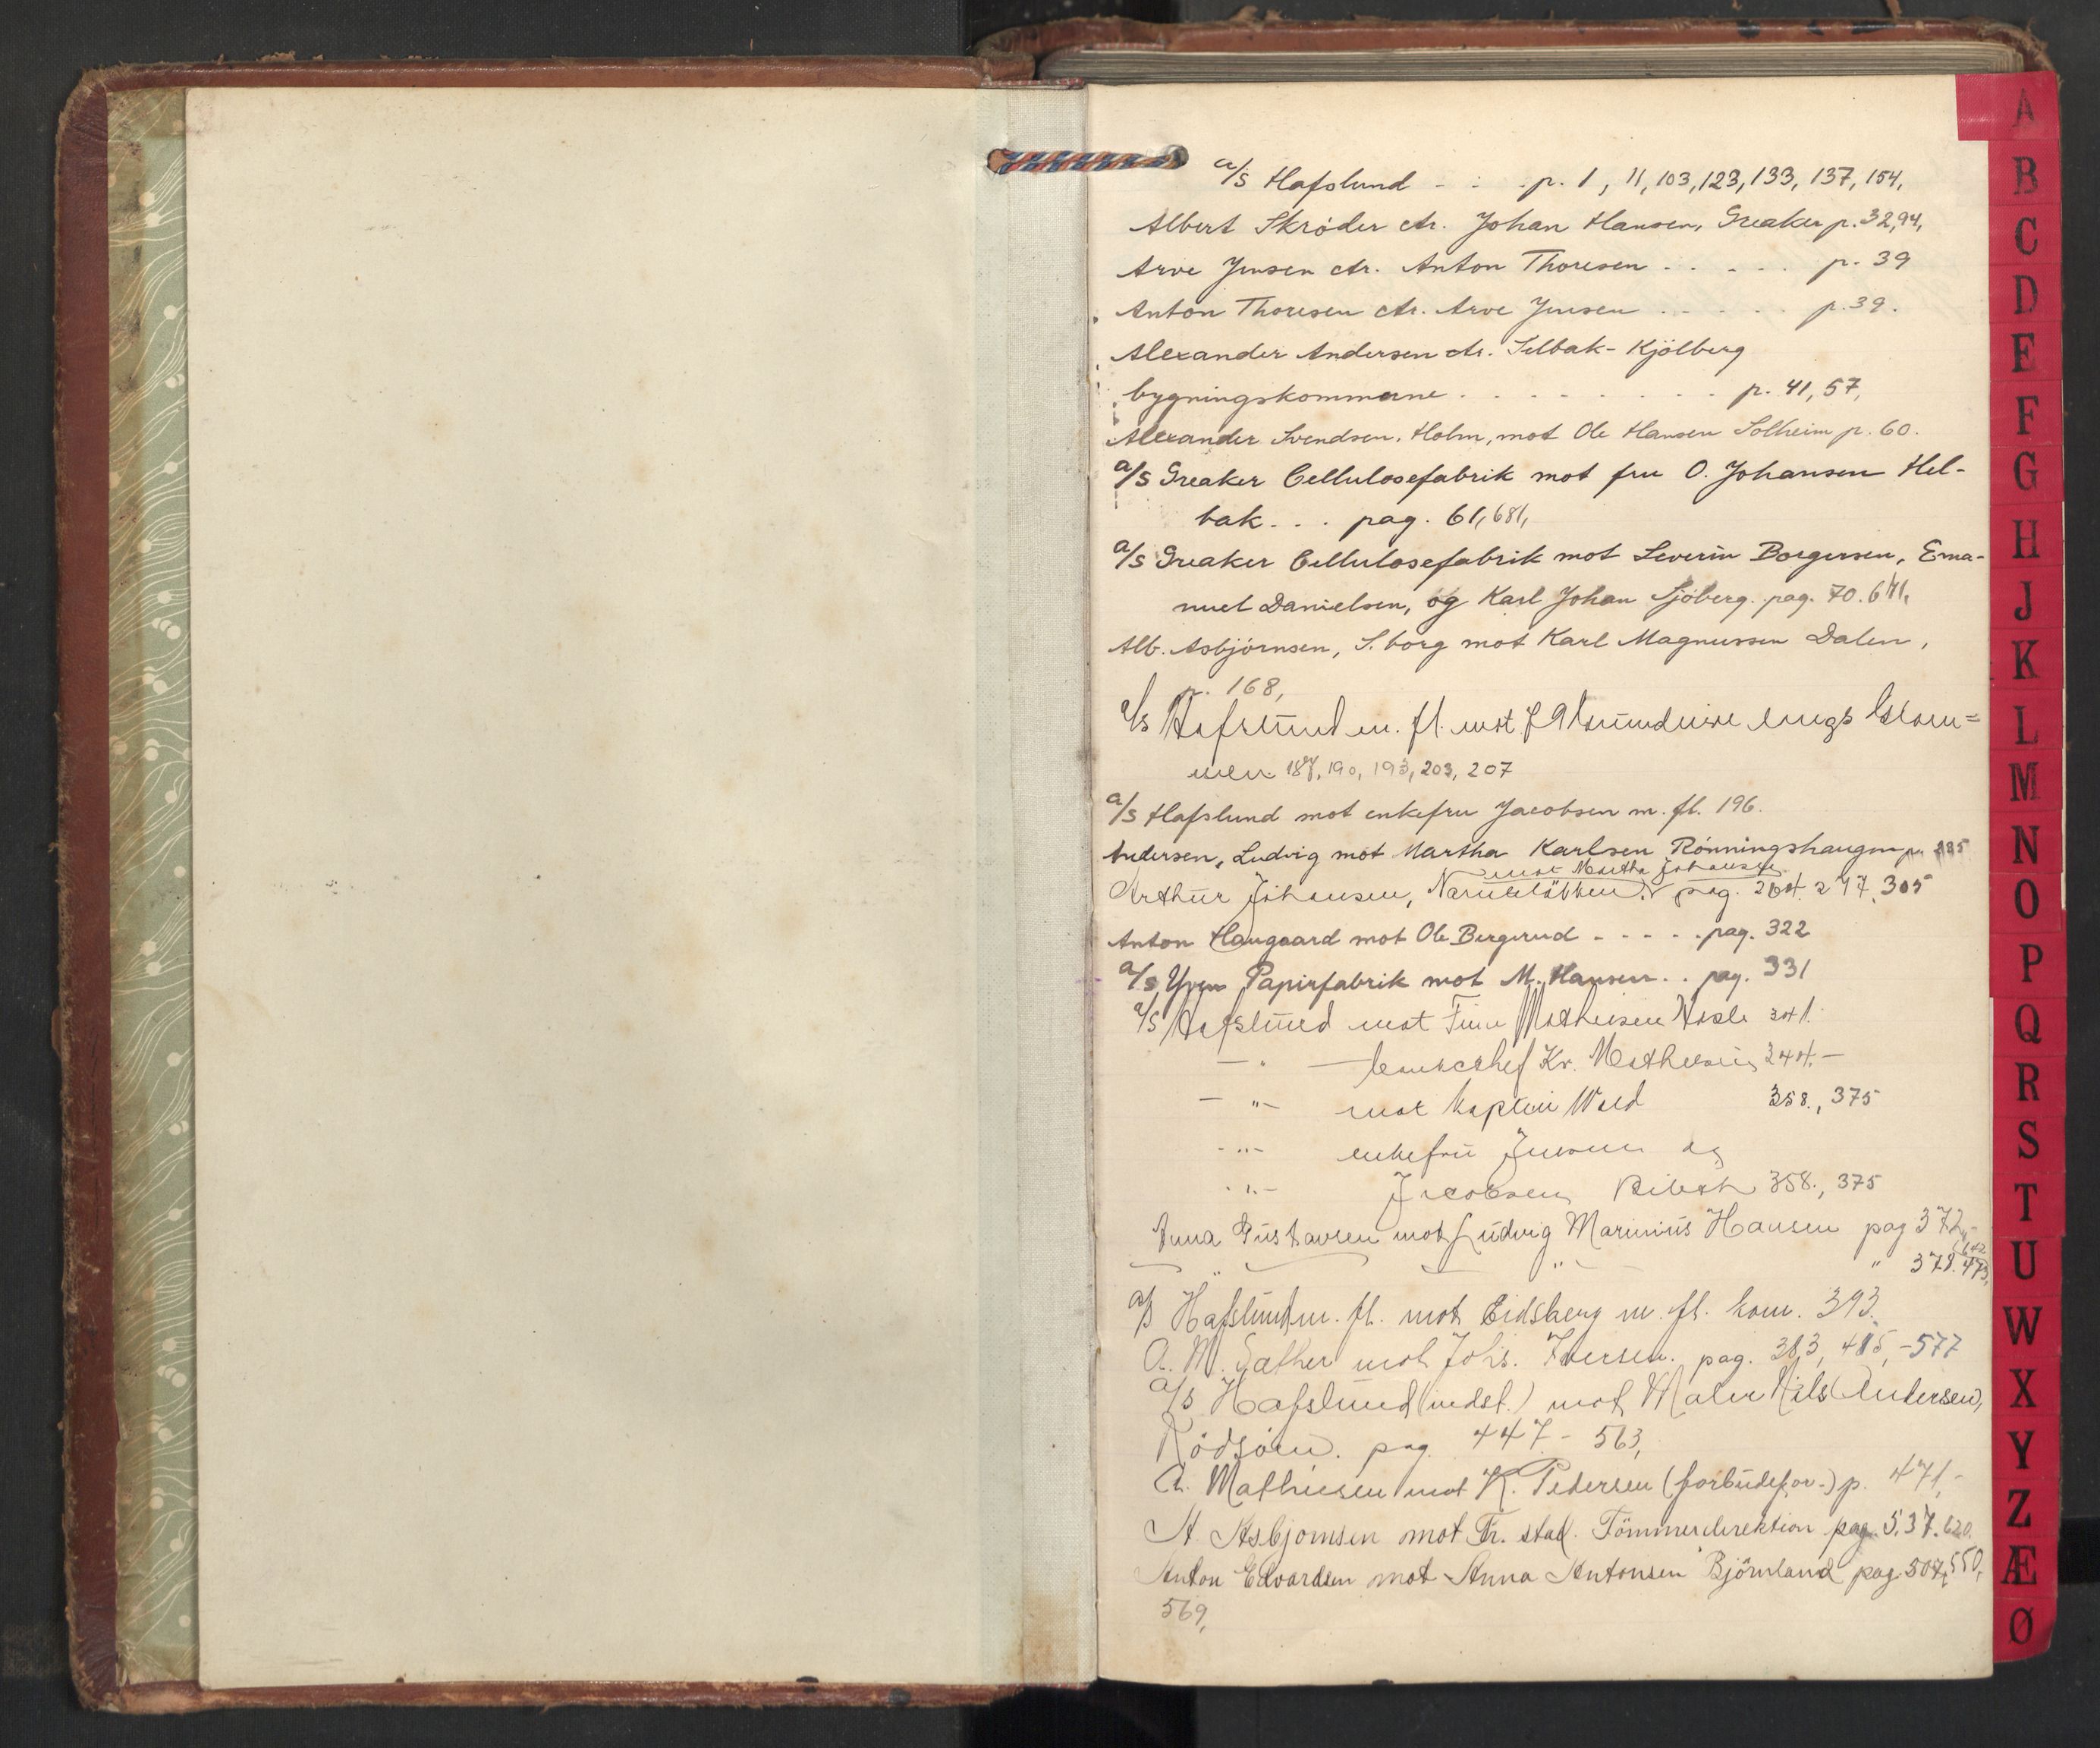 a/s Hafslund - - - p. 1, 11, 103, 123, 133, 137, 154,
Albert Skröder ctr. Johan Hansen, Greaker p. 32, 94,
Arve Jensen ctr. Anton Thoresen . . . . . p. 39
Anton Thoresen ctr. Arve Jensen . . . . . p. 39.
Alexander Andersen ctr. Selbak-Kjölberg
bygningskommune . . . . . . . . . p. 41, 57,
Alexander Svendsen, Holm, mot Ole Hansen Solheim p. 60.
a/s Greaker Cellulosefabrik mot fru O. Johansen Hel-
bak . . . pag. 61, 681,
a/s Greaker Cellulosefabrik mot Severin Borgersen, Ema-
nuel Danielsen, og Karl Johan Sjöberg. pag. 70.
Alb. Asbjörnsen, S.borg mot Karl Magnussen Dalen,
p. 168,
a/s Hafslund m. fl. mot langs Glom=
men 187, 190, 193, 203, 207
a/s Hafslund mot enkefru Jacobsen m. fl. 196.
Andersen, Ludvig mot Martha Karlsen Rönningshaugen p.
mot Martha Johansen
Arthur Johansen, pag. 264. 297, 305
Anton Haugaard mot Ole Bergerud - - - - . pag. 322
a/s Yven Papirfabrik mot M. Hansen . . pag. 331
a/s Hafslund mot Mathiesen 341.
— " — Kr. Mathiesen 344. —
— " — mot kaptein Wold 358., 375
- " - enkefru Jensen og
- " - Jacobsen 358., 375
Anna Gustavsen mot Ludvig Marinius Hansen pag 372,
" " " 378. 473,
a/s Hafslund m. fl. mot Eidsberg m. fl. kom. 393.
A. M. Sæther mot Johs. Iversen. pag. 383, 415, -577
a/s Hafslund (indst.) mot Maler Nils Andersen,
Rödsöen. pag. 447 - 563,
A. Mathiesen mot K. Pedersen (forbudsfor.) p. 471,-
A. Asbjornsen mot Fr. stad. Tömmerdirektion pag. 537. 620.
Anton Edvardsen mot Anna Antonsen Björnland pag. 507, 550,
569,
A
B
C
D
E
F
G
H
J
K
L
M
N
O
P
Q
R
S
T
U
W
X
Y
Z
Æ
Ø